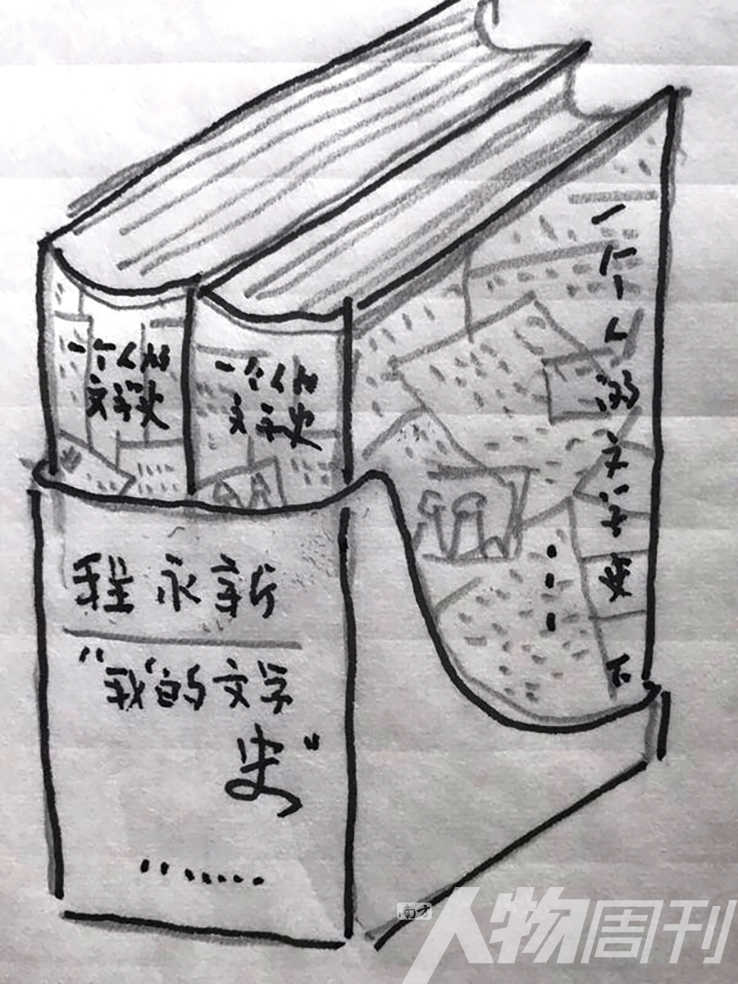 一个人的
文学史
一个人的
文学史
一个人的文学史 下
程永新
"我"的文学
史"
南方
人物周刊